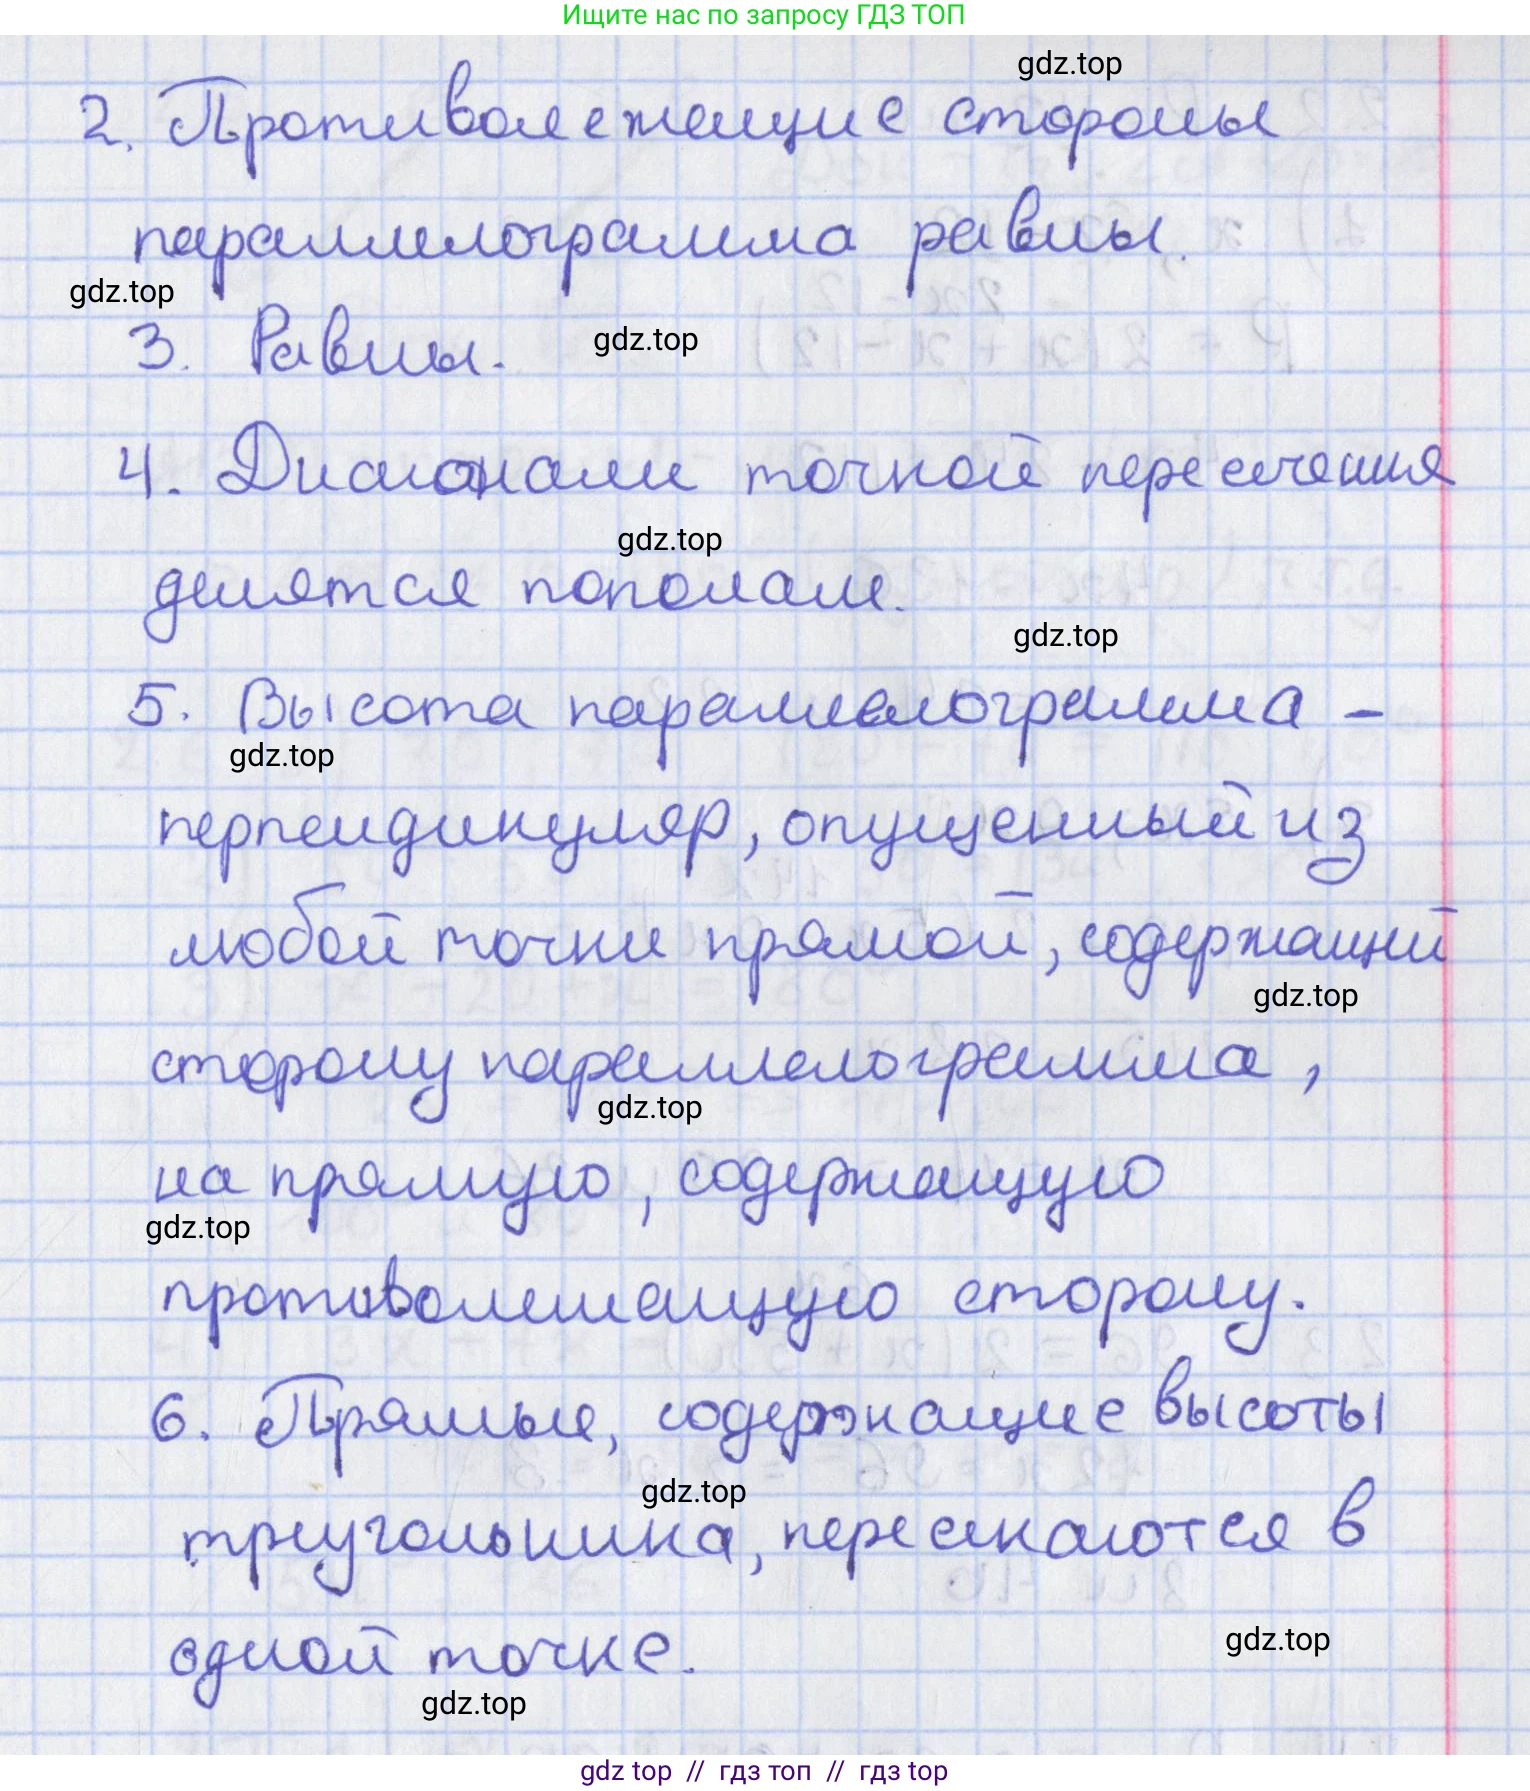 Ищите нас по запросу ГДЗ ТОП
gdz.top
2. Противолежащие стороны
параллелограмма равны.
gdz.top
3. Равны.
gdz.top
4. Диагонали точкой пересечения
gdz.top
делятся пополам.
gdz.top
5. Высота параллелограмма –
gdz.top
перпендикуляр, опущенный из
любой точки прямой, содержащий
gdz.top
сторону параллелограмма,
gdz.top
на прямую, содержащую
gdz.top
противолежащую сторону.
6. Прямые, содержащие высоты
gdz.top
треугольника, пересекаются в
одной точке.
gdz.top
gdz.top
gdz.top // гдз топ // гдз top